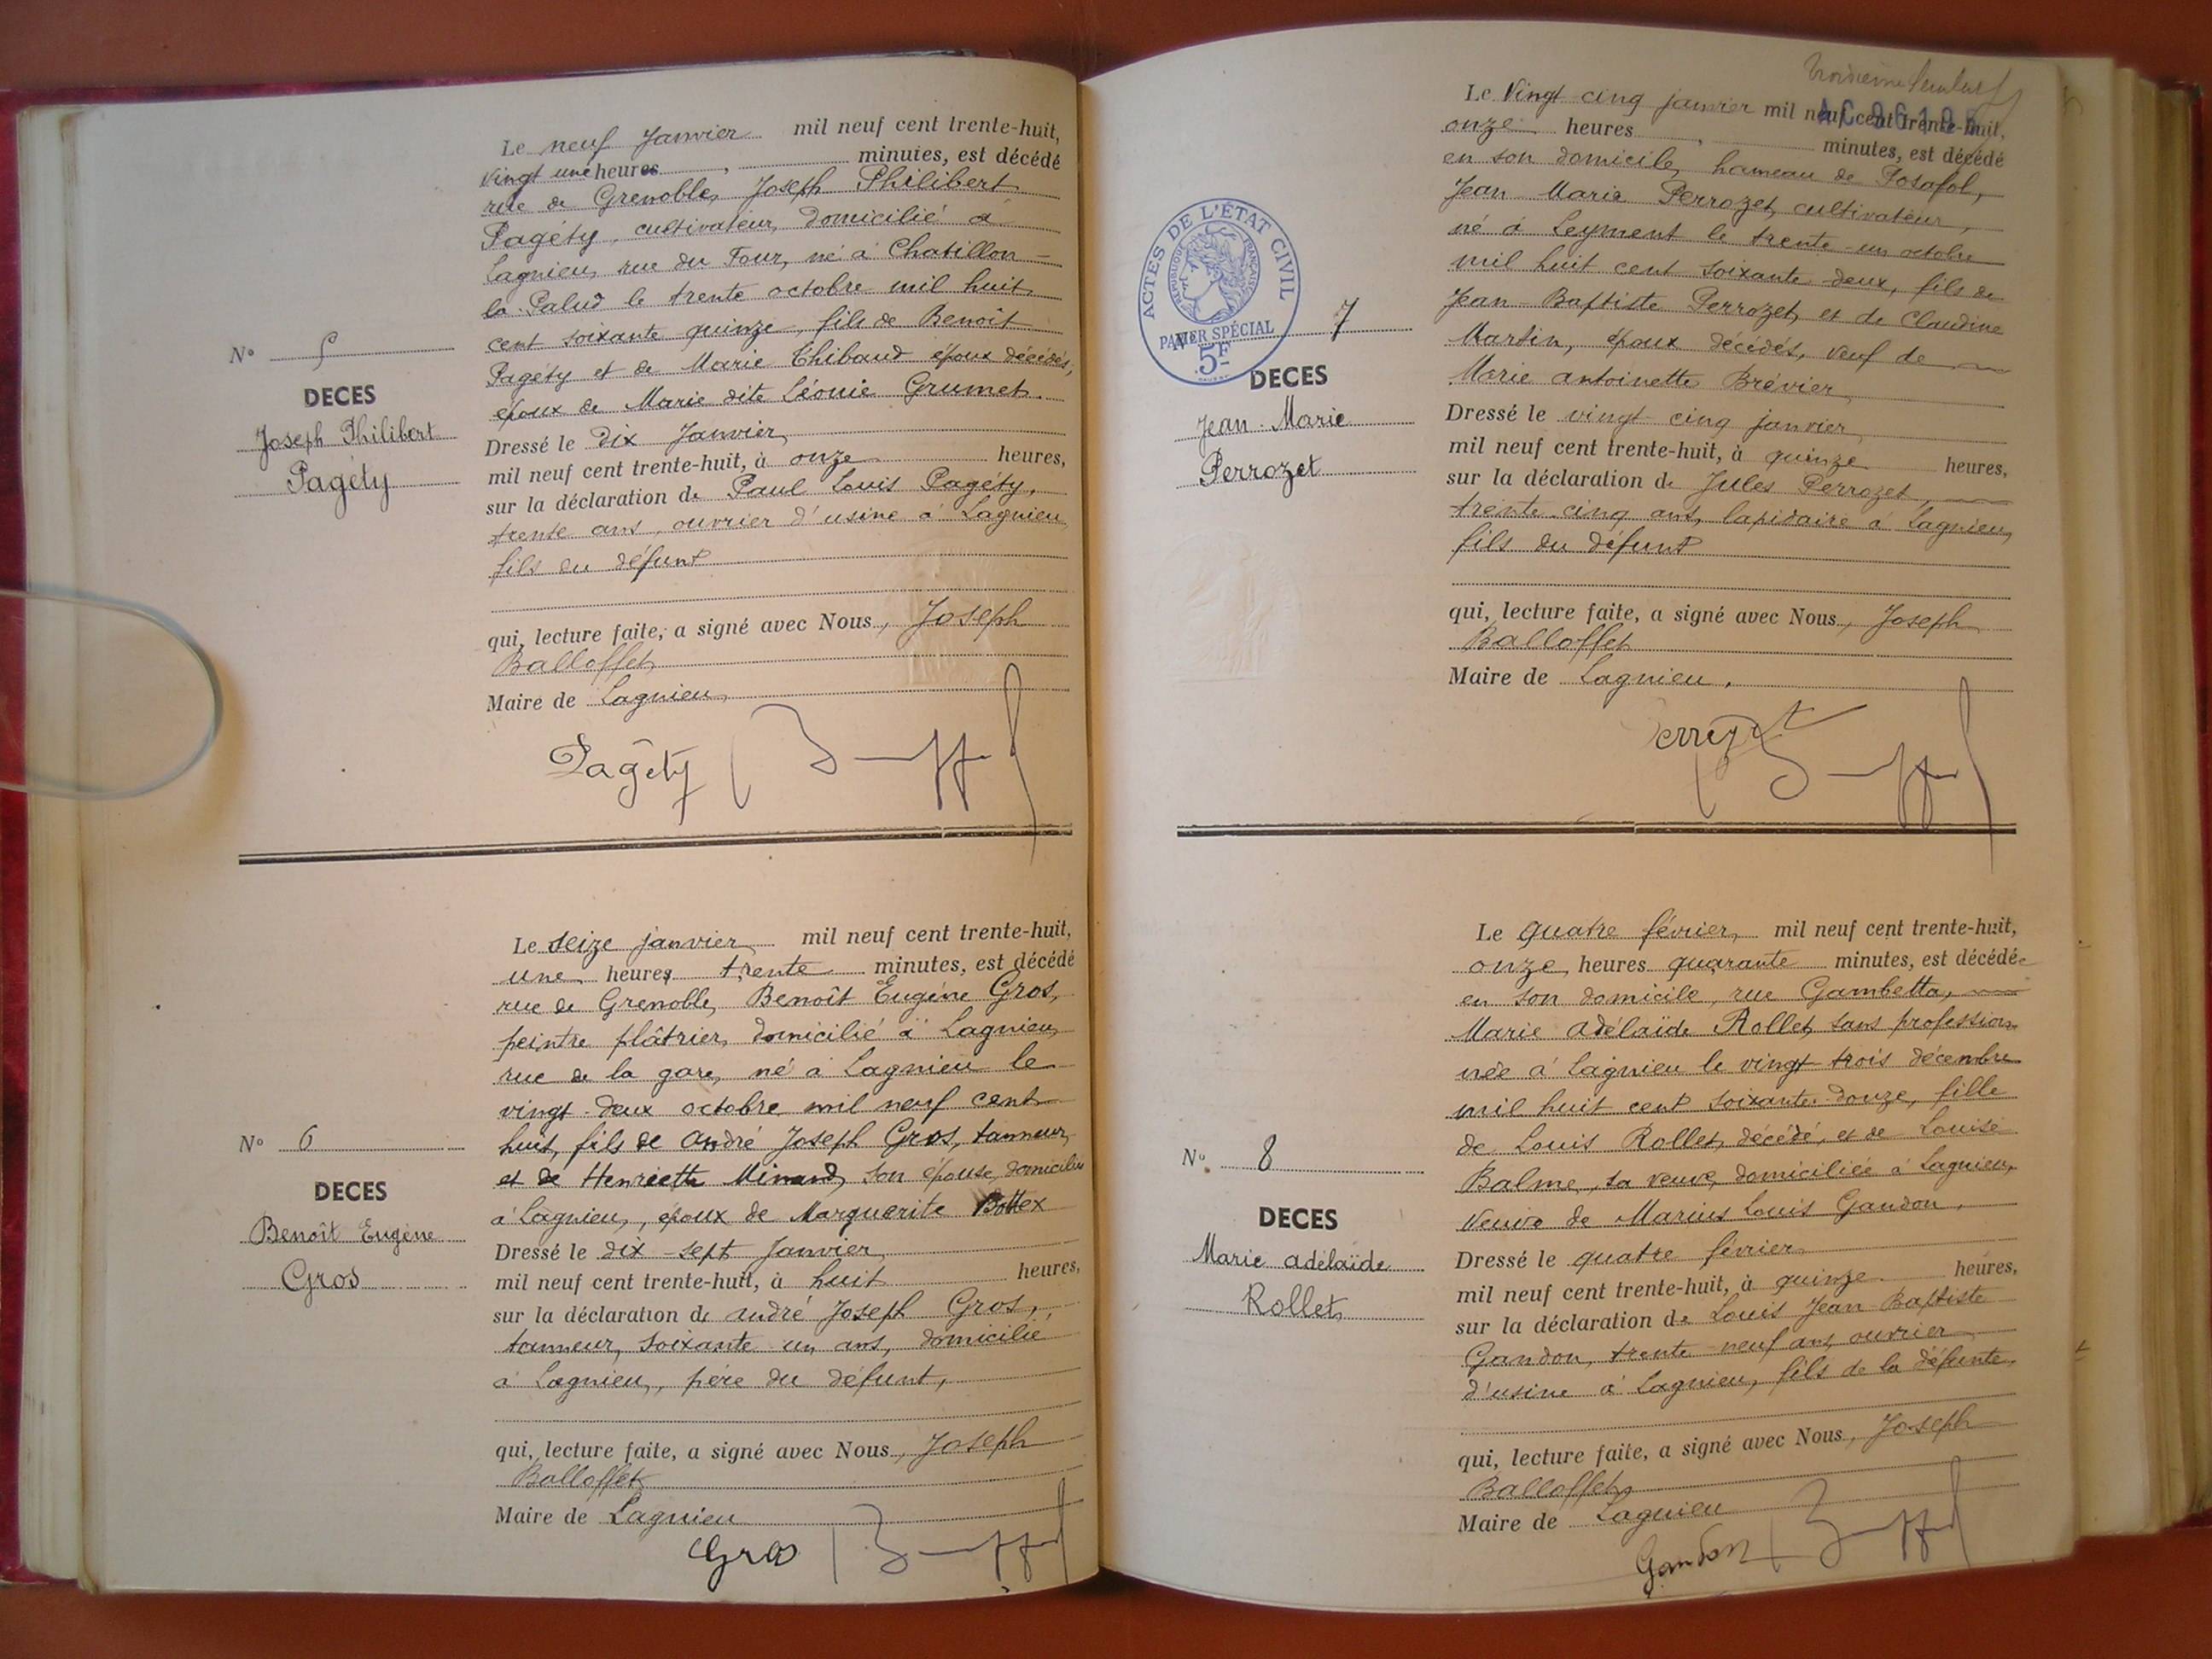 Le neuf Janvier mil neuf cent trente-huit,
vingt une heures, minutes, est décédé
rue de Grenoble, Joseph Philibert
Pagéty, cultivateur, domicilié à
Lagnieu, rue du Four, né à Chatillon
la Palud le trente octobre mil huit
cent soixante quinze, fils de Benoît
Pagéty et de Marie Thibaud époux décédés,
époux de Marie dite Léonie Grumet.
Dressé le dix Janvier
mil neuf cent trente-huit, à onze heures,
sur la déclaration de Paul Louis Pagéty,
trente ans, ouvrier d'usine à Lagnieu,
fils du défunt
qui, lecture faite, a signé avec Nous, Joseph
Balloffet
Maire de Lagnieu
Pagéty
N° 5
DECES
Joseph Philibert
Pagéty
Le seize janvier mil neuf cent trente-huit,
une heures trente minutes, est décédé
rue de Grenoble, Benoît Eugène Gros,
peintre plâtrier, domicilié à Lagnieu,
rue de la gare, né à Lagnieu le
vingt-deux octobre mil neuf cent
huit, fils de André Joseph Gros, tanneur,
et de Henriette Minand, son épouse, domiciliés
à Lagnieu, époux de Marguerite Bottex
Dressé le dix-sept Janvier
mil neuf cent trente-huit, à huit heures,
sur la déclaration de André Joseph Gros,
tanneur, soixante un ans, domicilié
à Lagnieu, père du défunt,
qui, lecture faite, a signé avec Nous, Joseph
Balloffet
Maire de Lagnieu
Gros
N° 6
DECES
Benoît Eugène
Gros
Le Vingt cinq janvier mil neuf cent trente-huit,
onze heures, minutes, est décédé
en son domicile, hameau de Posafol,
Jean Marie Perrozet, cultivateur,
né à Leyment le trente-un octobre
mil huit cent soixante deux, fils de
Jean-Baptiste Perrozet, et de Claudine
Martin, époux décédés, veuf de
Marie Antoinette Brévier
Dressé le vingt-cinq janvier
mil neuf cent trente-huit, à quinze heures,
sur la déclaration de Jules Perrozet,
trente cinq ans, lapidaire à Lagnieu,
fils du défunt
qui, lecture faite, a signé avec Nous, Joseph
Balloffet
Maire de Lagnieu.
ACTES DE L'ÉTAT CIVIL
RÉPUBLIQUE FRANÇAISE
PAPIER SPÉCIAL
5F
N° 7
DECES
Jean-Marie
Perrozet
Le quatre février, mil neuf cent trente-huit,
onze heures quarante minutes, est décédée
en son domicile, rue Gambetta,
Marie Adélaïde Rollet, sans profession
née à Lagnieu le vingt trois décembre
mil huit cent soixante-douze, fille
de Louis Rollet, décédé, et de Louise
Balme, sa veuve, domiciliée à Lagnieu,
Veuve de Marius Louis Gandon,
Dressé le quatre février
mil neuf cent trente-huit, à quinze heures,
sur la déclaration de Louis Jean-Baptiste
Gandon, trente-neuf ans, ouvrier
d'usine à Lagnieu, fils de la défunte,
qui, lecture faite, a signé avec Nous, Joseph
Balloffet,
Maire de Lagnieu
Gandon
N° 8
DECES
Marie Adélaïde
Rollet